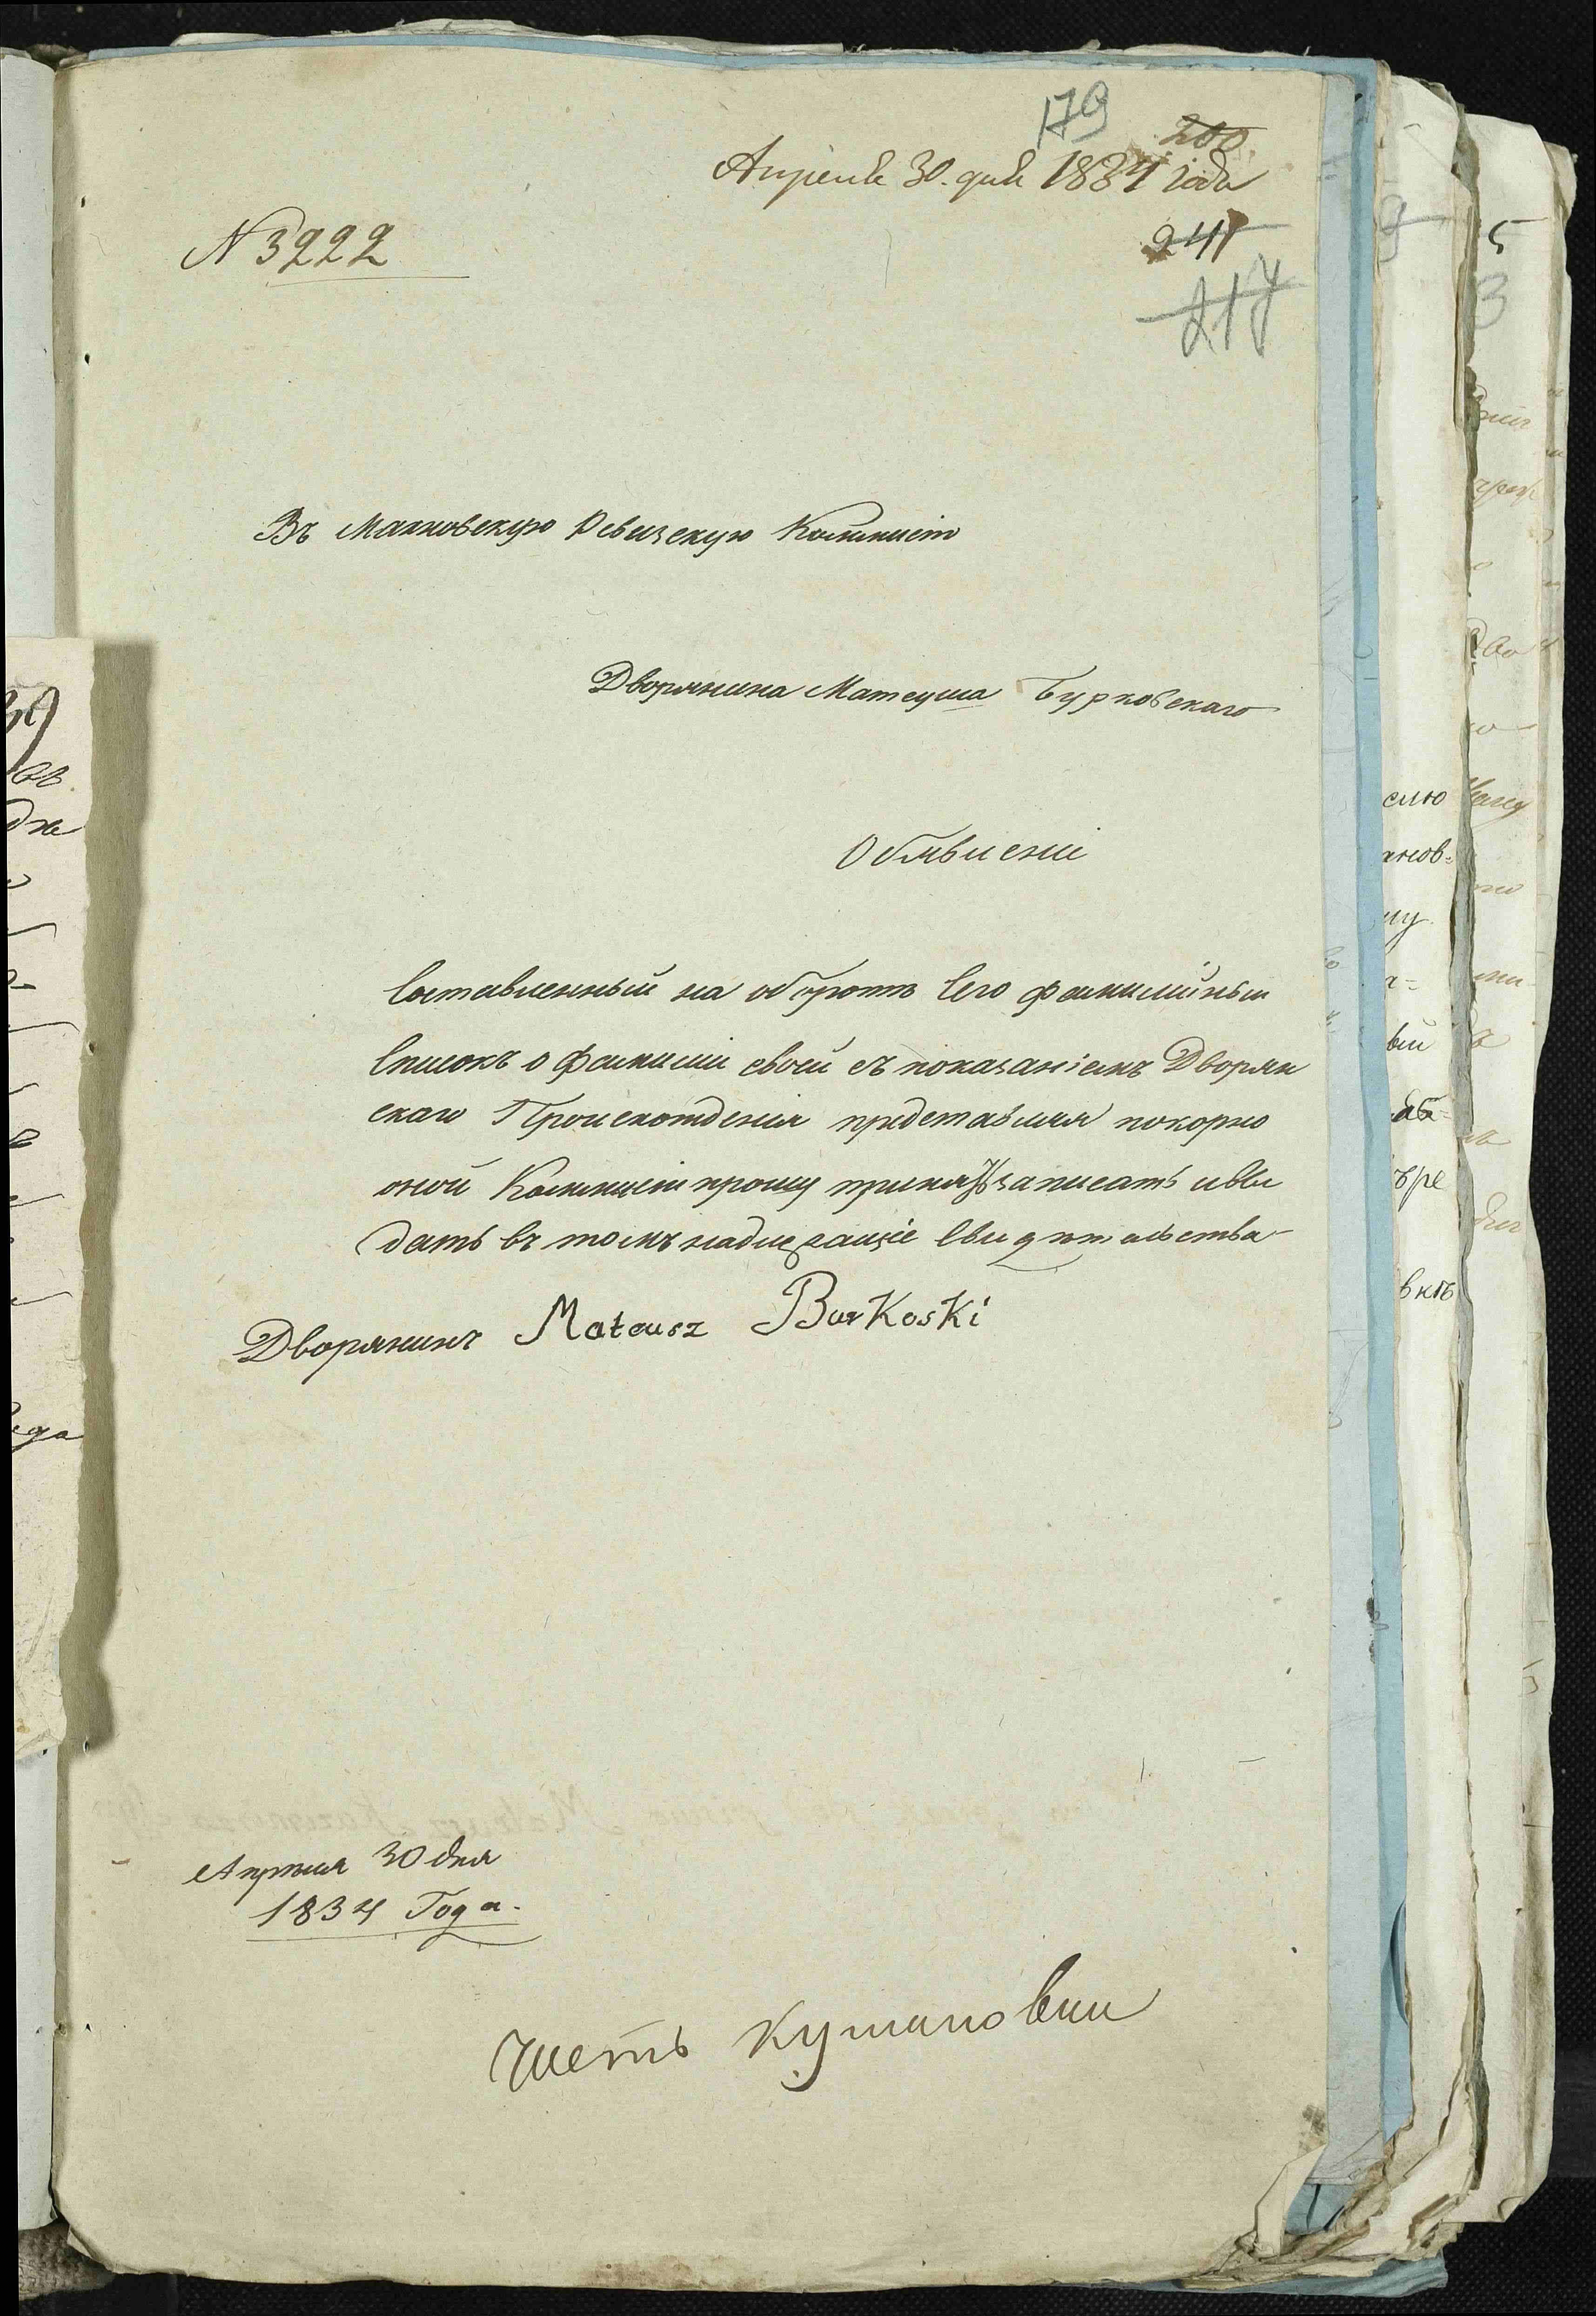 179
200
Апреля 30. дня 1834 года
N 3222
241
217
Въ Маяковскую Ревизскую Коммисію
Дворянина Матеуша Бурковскаго
Объявленіе
Составленный на оборотѣ сего фамилійный
Списокъ о фамиліи своей съ показаніемъ Дворян
скаго Происхожденія представляя покорно
оной Коммисіи прошу принять записать и вы
дать въ томъ надлежащіе Свидѣтельства
Дворянинъ Mateusz Burkoski
Апрѣля 30 дня
1834 Года.